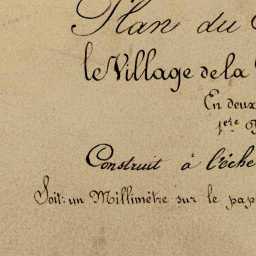 Plan du
le Village de la
En deux
1ere
Construit à l'éche
Soit: un Millimètre sur le pap